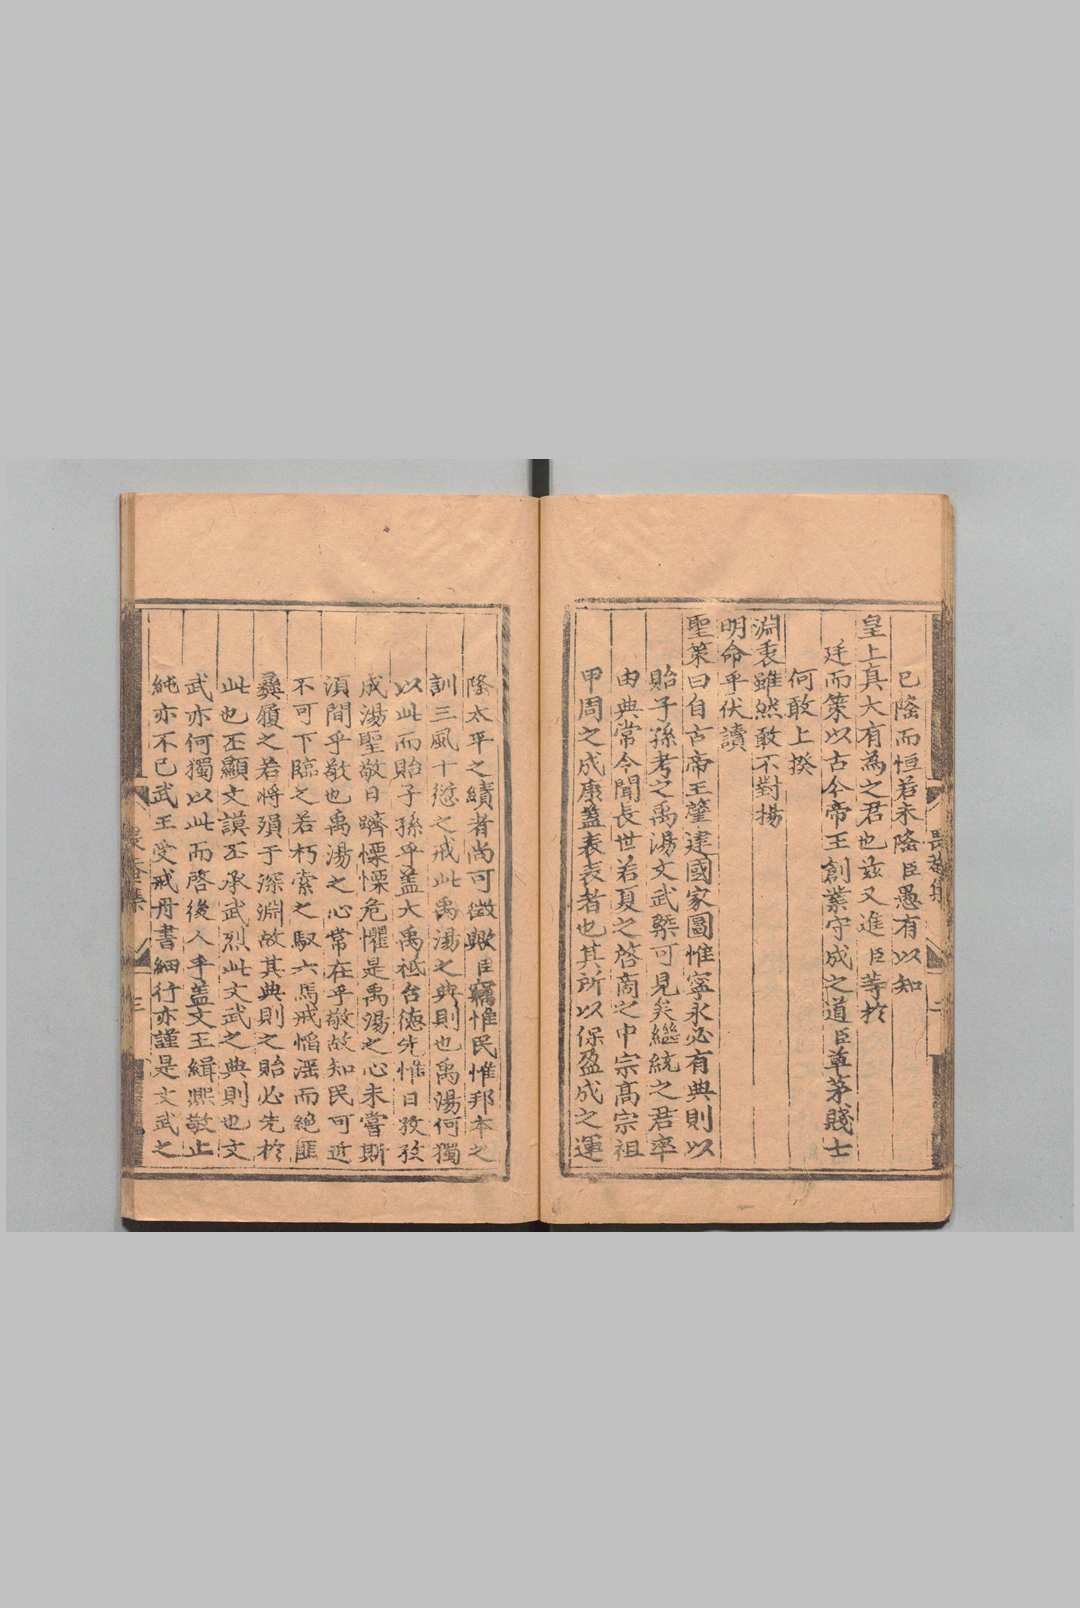 已隆而恒若未隆臣愚有以知
皇上真大有為之君也茲又進臣等於
廷而策以古今帝王創業守成之道臣草茅賤士
何敢上揆
淵衷雖然敢不對揚
明命乎伏讀
聖策曰自古帝王肇建國家圖惟寧永必有典則以
貽子孫考之禹湯文武槩可見矣繼統之君率
由典常令聞長世若夏之啓商之中宗高宗祖
甲周之成康蓋表表者也其所以保盈成之運
隆太平之績者尚可徵歟臣竊惟民惟邦本之
訓三風十愆之戒此禹湯之典則也禹湯何獨
以此而貽子孫乎盖大禹祗台德先惟日孜孜
成湯聖敬日躋慄慄危懼是禹湯之心未嘗斯
湏間乎敬也禹湯之心常在乎敬故知民可近
不可下臨之若朽索之馭六馬戒慆滛而絶匪
彝履之若將殞于深淵故其典則之貽必先於
此也丕顯文謨丕承武烈此文武之典則也文
武亦何獨以此而啓後人乎盖文王緝熙敬止
純亦不已武王受戒丹書細行亦謹是文武之
集
二
集
三